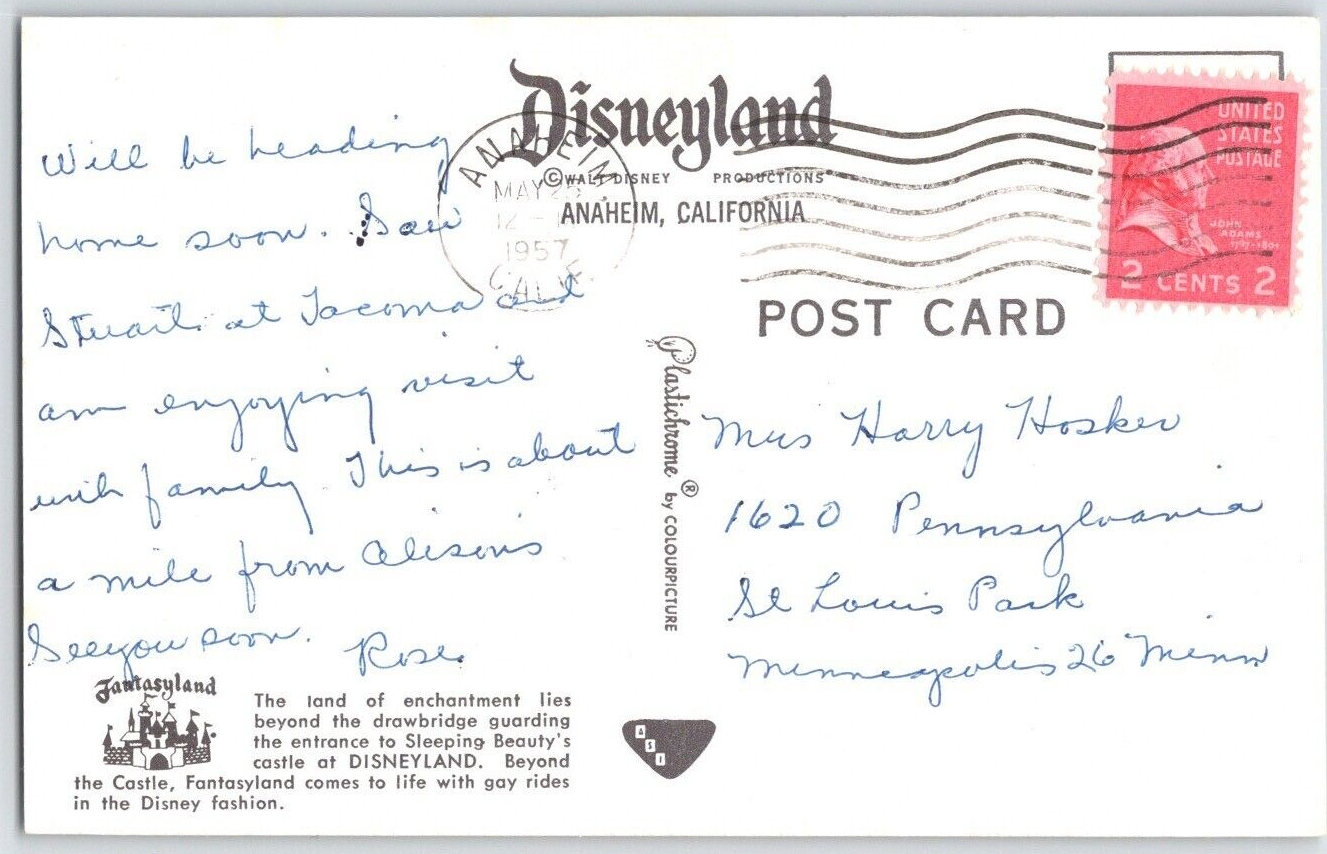 Disneyland
©WALT DISNEY PRODUCTIONS
ANAHEIM, CALIFORNIA
POST CARD
ANAHEIM
MAY
12
1957
CALIF.
UNITED
STATES
POSTAGE
JOHN
ADAMS
1797-1801
2 CENTS 2
Will be heading
home soon. Saw
Stuart at Tacoma and
am enjoying visit
with family. This is about
a mile from Alisons
See you soon.
Rose.
Plastichrome ® by COLOURPICTURE
Mrs Harry Hosker
1620 Pennsylvania
St Louis Park
Minneapolis 26 Minn
Fantasyland
The land of enchantment lies
beyond the drawbridge guarding
the entrance to Sleeping Beauty's
castle at DISNEYLAND. Beyond
the Castle, Fantasyland comes to life with gay rides
in the Disney fashion.
ASI